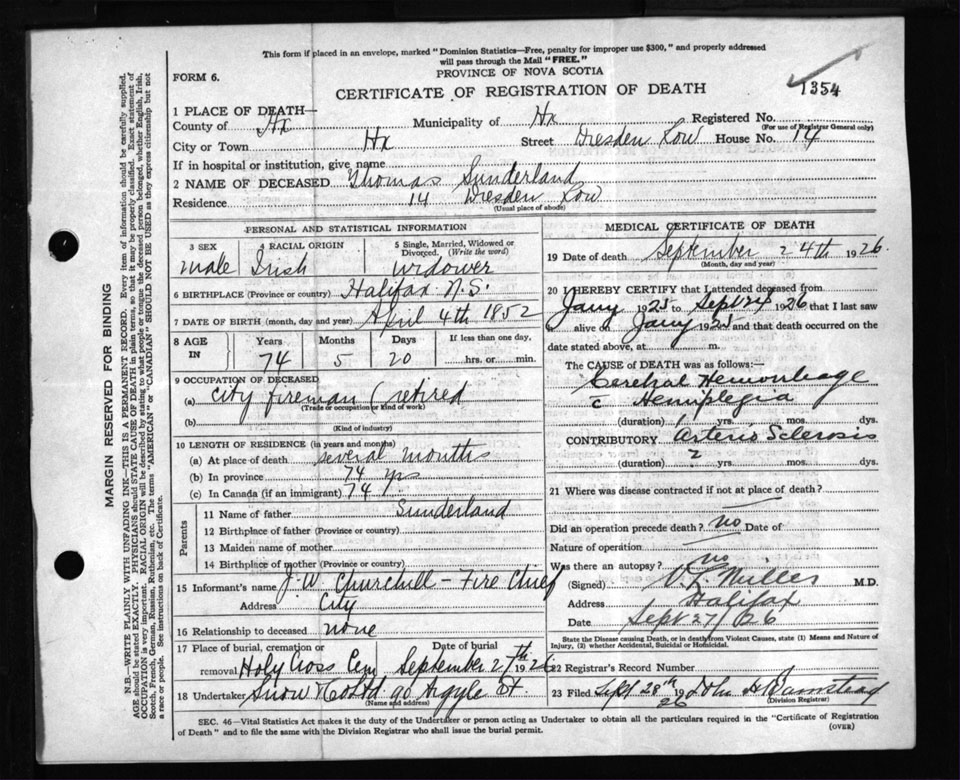 This form if placed in an envelope, marked "Dominion Statistics—Free, penalty for improper use $300," and properly addressed
will pass through the Mail "FREE."
PROVINCE OF NOVA SCOTIA
FORM 6.
CERTIFICATE OF REGISTRATION OF DEATH
1354
1 PLACE OF DEATH—
County of Hx Municipality of Hx Registered No.
(For use of Registrar General only)
City or Town Hx Street Dresden Row House No. 14
If in hospital or institution, give name
2 NAME OF DECEASED Thomas Sunderland
Residence 14 Dresden Row
(Usual place of abode)
PERSONAL AND STATISTICAL INFORMATION
3 SEX 4 RACIAL ORIGIN 5 Single, Married, Widowed or
Divorced. (Write the word)
male Irish widower
6 BIRTHPLACE (Province or country) Halifax N.S.
7 DATE OF BIRTH (month, day and year) April 4th 1852
8 AGE IN Years Months Days If less than one day,
74 5 20 hrs. or min.
9 OCCUPATION OF DECEASED
(a) City fireman (retired
(Trade or occupation or kind of work)
(b)
(Kind of industry)
10 LENGTH OF RESIDENCE (in years and months)
(a) At place of death several months
(b) In province 74 yrs
(c) In Canada (if an immigrant) 74
Parents
11 Name of father Sunderland
12 Birthplace of father (Province or country)
13 Maiden name of mother
14 Birthplace of mother (Province or country)
15 Informant's name J. W. Churchill - Fire Chief
Address City
16 Relationship to deceased none
17 Place of burial, cremation or Date of burial
removal Holy Cross Cem September 27th 1926
18 Undertaker Snow & Co Ltd 90 Argyle St.
(Name and address)
MEDICAL CERTIFICATE OF DEATH
19 Date of death September 24th 1926.
(Month, day and year)
20 I HEREBY CERTIFY that I attended deceased from
Jany 1925 Sept 24 1926 that I last saw
alive on Jany 1925 and that death occurred on
date stated above, at m.
The CAUSE OF DEATH was as follows:—
Cerebral Hemorrhage
c Hemiplegia
(duration) 1 yrs. mos. dys.
CONTRIBUTORY Arterio Sclerosis
(duration) 2 yrs. mos. dys.
21 Where was disease contracted if not at place of death?
Did an operation precede death? no Date of
Nature of operation
Was there an autopsy? no
(Signed) Miller M.D.
Address Halifax
Date Sept 27/26
State the Disease causing Death, or in death from Violent Causes, state (1) Means and Nature of
Injury, (2) whether Accidental, Suicidal or Homicidal.
22 Registrar's Record Number
23 Filed Sept 28th 1926 John H Barnstead
(Division Registrar)
SEC. 46—Vital Statistics Act makes it the duty of the Undertaker or person acting as Undertaker to obtain all the particulars required in the "Certificate of Registration
of Death" and to file the same with the Division Registrar who shall issue the burial permit.
(OVER)
MARGIN RESERVED FOR BINDING
N.B.—WRITE PLAINLY WITH UNFADING INK—THIS IS A PERMANENT RECORD. Every item of information should be carefully supplied.
AGE should be stated EXACTLY. PHYSICIANS should STATE CAUSE OF DEATH in plain terms, so that it may be properly classified. Exact statement of
OCCUPATION is very important. RACIAL ORIGIN will be described by stating to what people or tongue the deceased person belonged, whether English, Irish,
Scotch, French, German, Russian, Ruthenian, etc. The terms "AMERICAN" or "CANADIAN" SHOULD NOT BE USED as they express citizenship but not
a race or people. See instructions on back of Certificate.